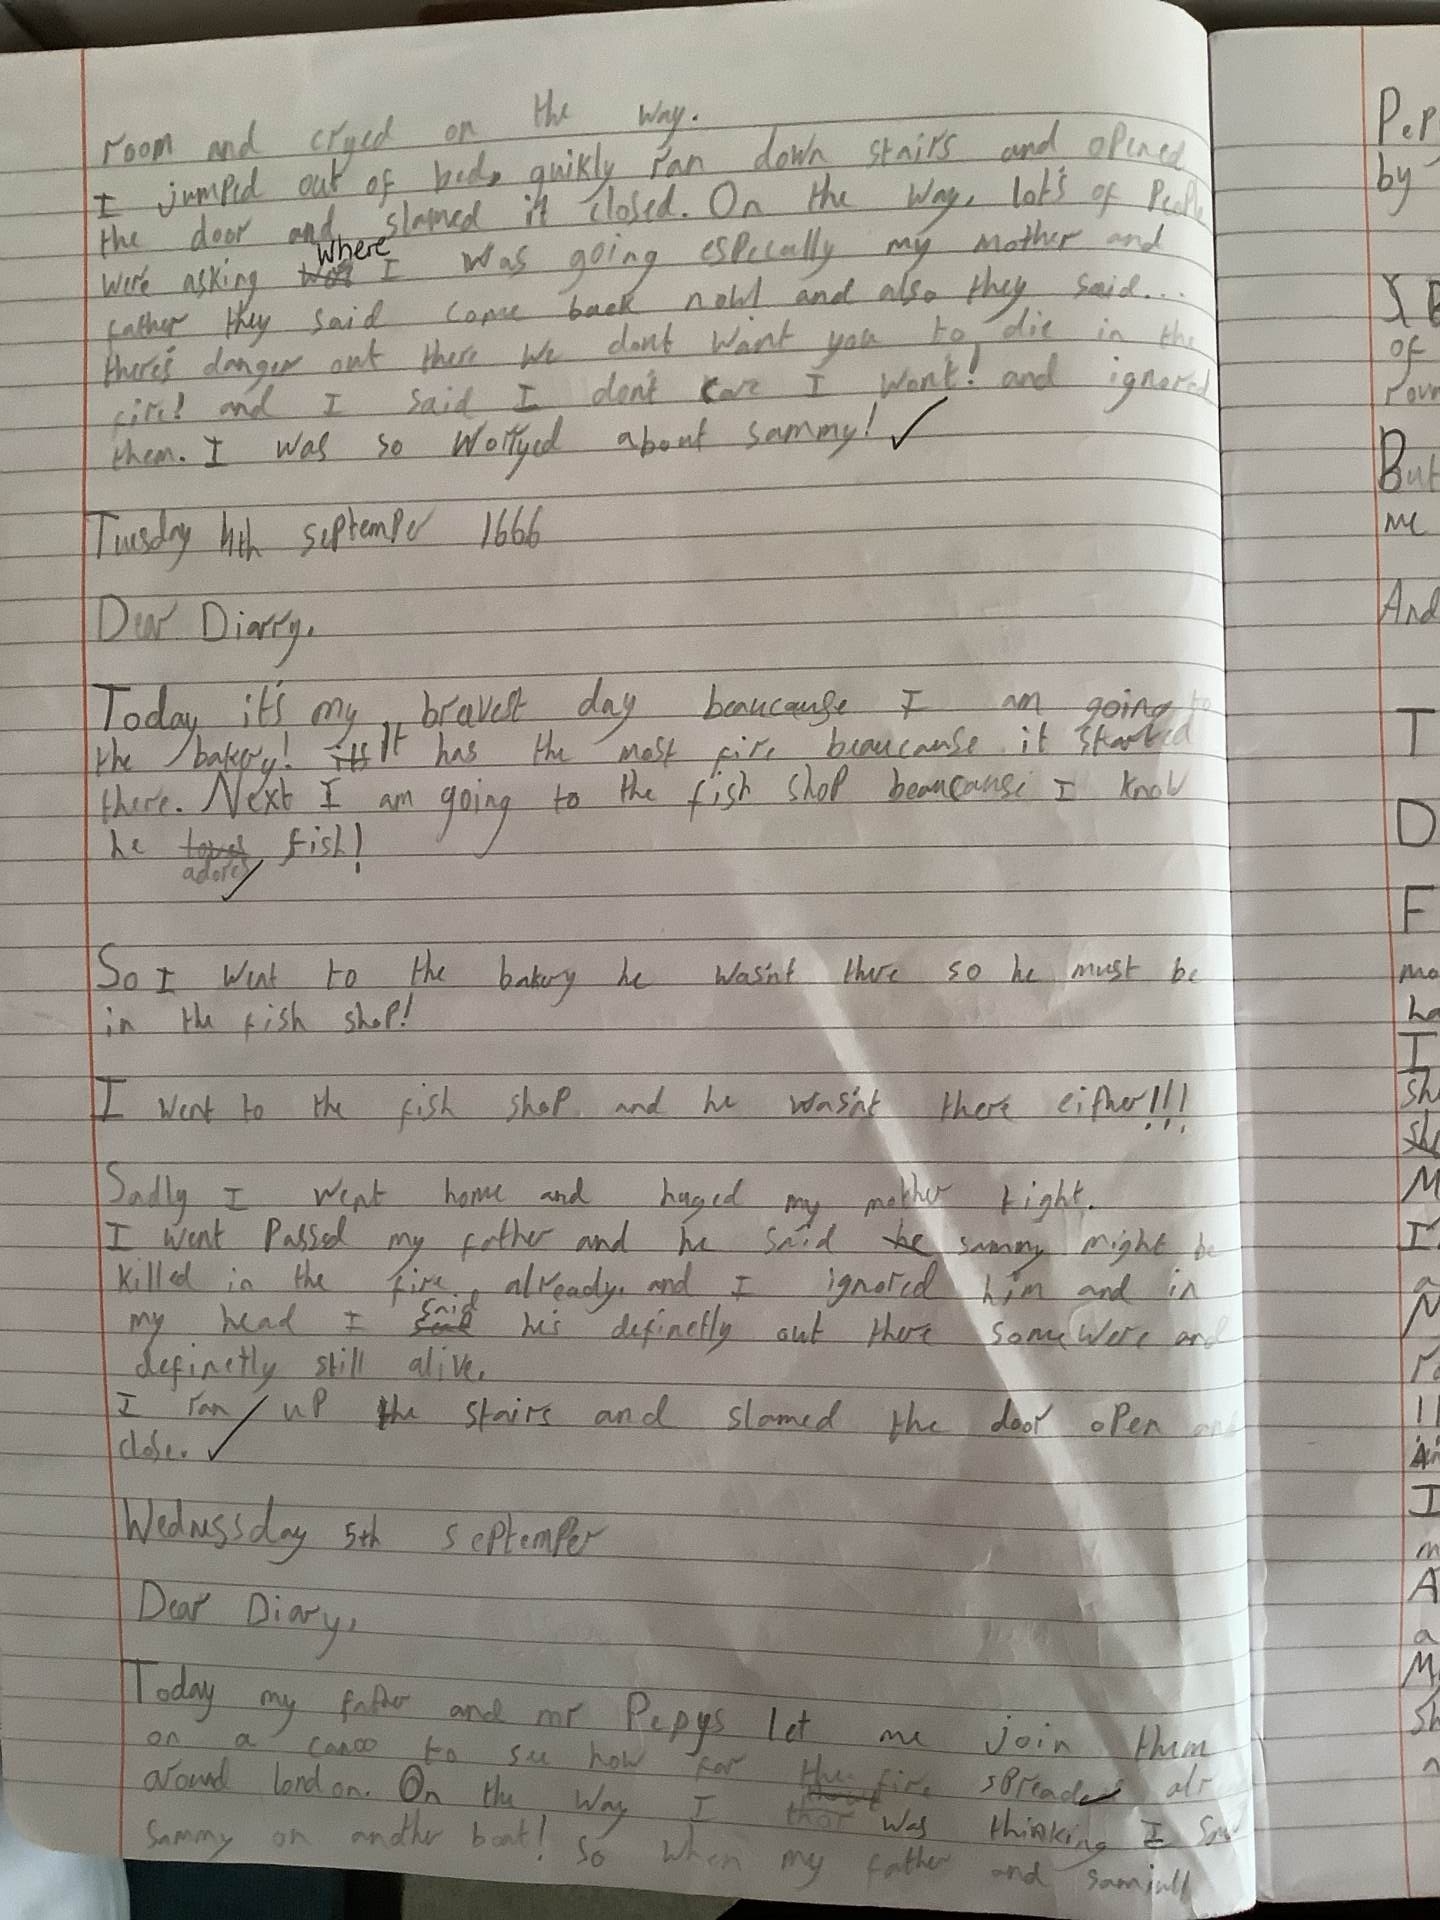 room and cryed on the way.
I jumped out of bed, quikly ran down stairs and opened
the door and slamed it closed. On the way, lot's of People
were asking where I was going especally my mother and
father they said come back now! and also they said...
there's danger out there we dont want you to die in the
fire! and I said I don't care I wont! and ignored
them. I was so worryed about sammy!
Tuesday 4th septemper 1666
Dear Diarry,
Today it's my bravest day beaucause I am going to
the bakery! It has the most fire beaucause it started
there. Next I am going to the fish shop beaucause I know
he loves fish!
adores
So I went to the bakery he wasn't there so he must be
in the fish shop!
I went to the fish shop and he wasn't there either!!!
Sadly I went home and huged my mother tight.
I went Passed my father and he said he sammy might be
killed in the fire already, and I ignored him and in
my head I said his definetly out there some were and
definetly still alive.
I ran up the stairs and slamed the door open and
close.
Wednessday 5th septemper
Dear Diary,
Today my father and mr Pepys let me join them
on a canoo to see how far the fire spreads
around london. On the way I was thinking I saw
sammy on another boat! so when my father and
PeP
by
of
But
me
And
T
D
F
I
M
I
I
A
a